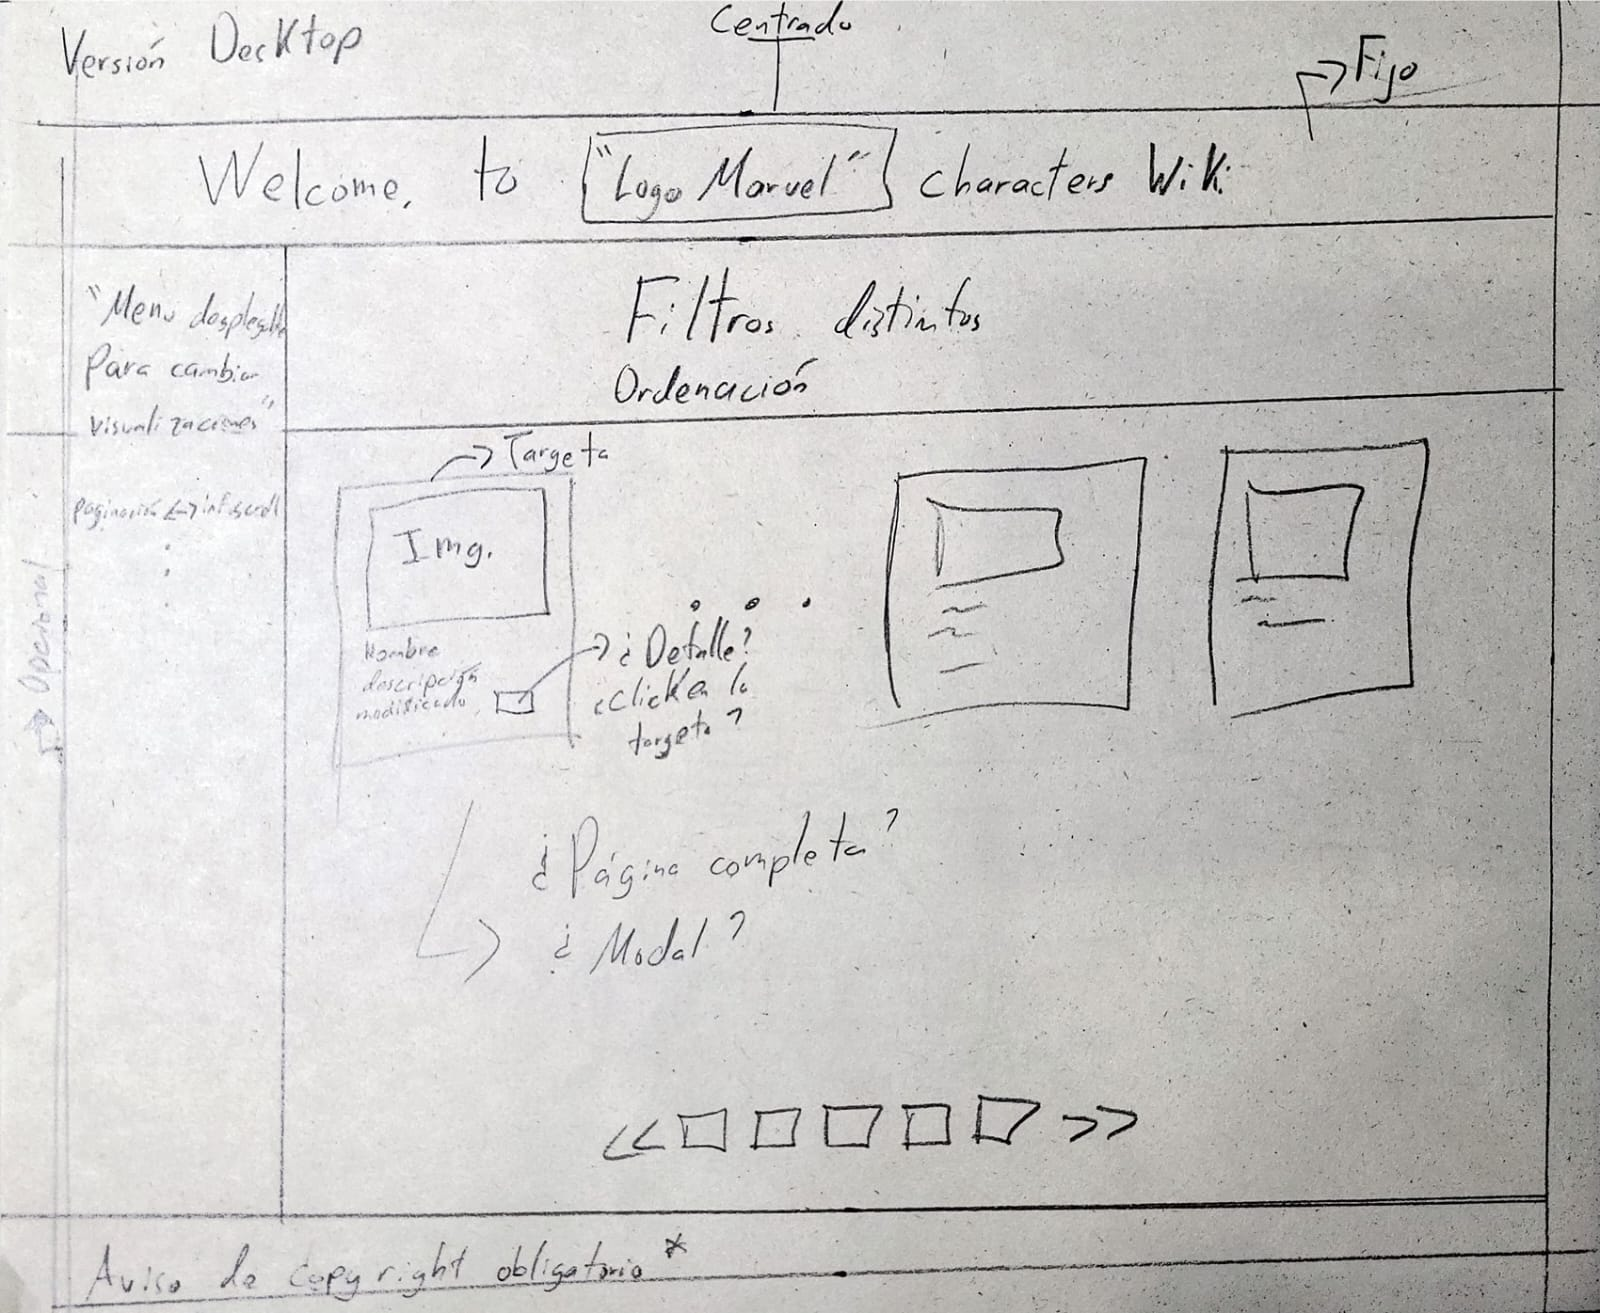 Versión Decktop
Centrado
Fijo
Welcome, to "Logo Marvel" characters Wiki
"Menu desplegable
Para cambiar
visualizaciones"
paginación <-> infscroll
Opcional
Filtros distintos
Ordenación
Targeta
Img.
Nombre
descripción
modificado
¿Detalle?
¿Click en la
targeta?
¿Página completa?
¿Modal?
<< >>
Aviso de copyright obligatorio *